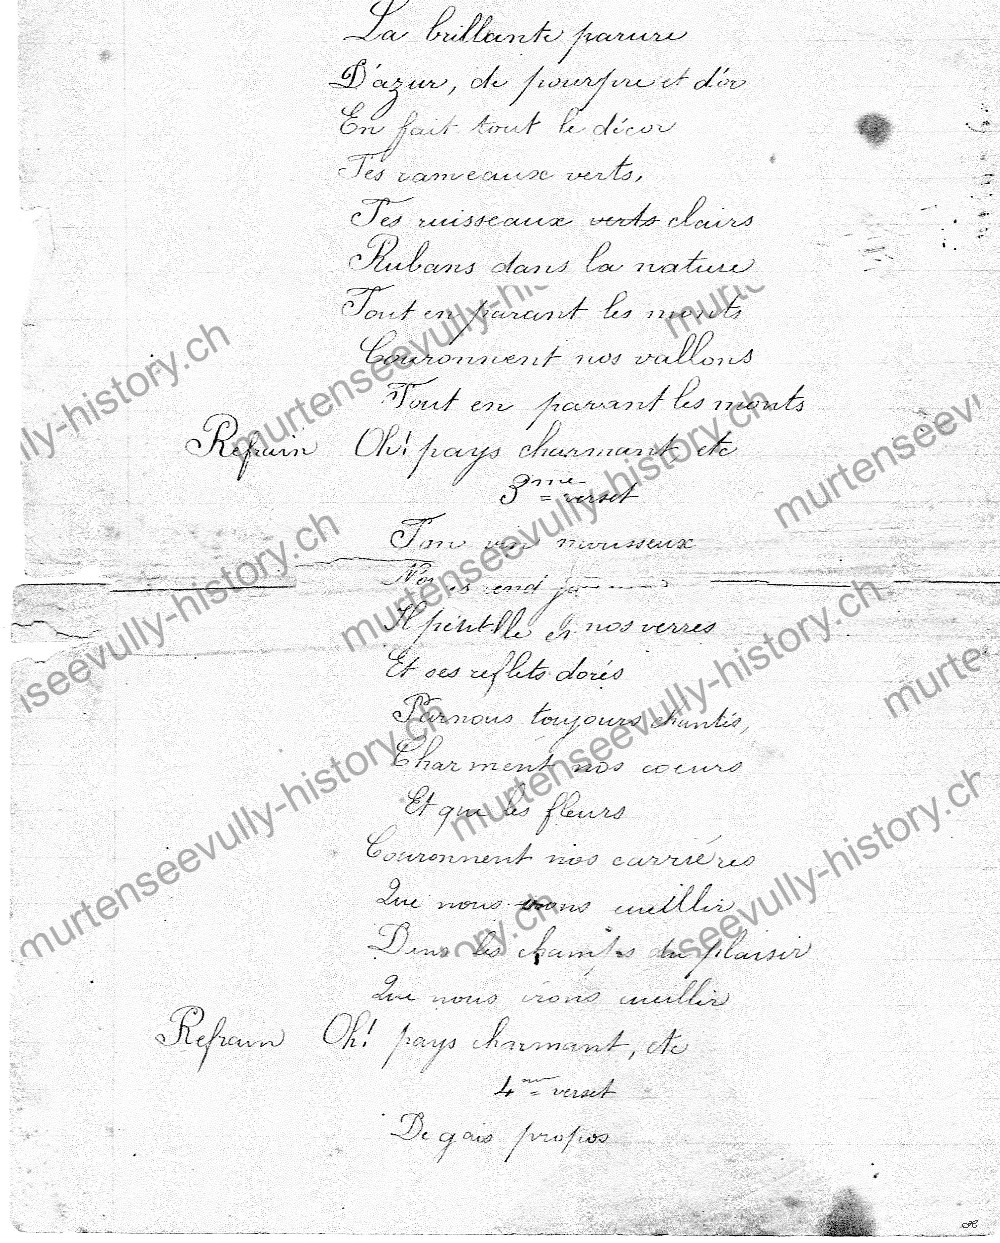 La brillante parure
D'azur, de pourpre et d'or
En fait tout le décor
Tes rameaux verts,
Tes ruisseaux verts clairs
Rubans dans la nature
Tout en parant les monts
Couronnent nos vallons
Tout en parant les monts
Refrain Oh! pays charmant etc
3me verset
Ton vin mousseux
Nous rend
Il pétille en nos verres
Et ses reflets dorés
Par nous toujours chantés,
Charment nos coeurs
Et que les fleurs
Couronnent nos carrières
Que nous irons cueillir
Dans les champs du plaisir
Que nous irons cueillir
Refrain Oh! pays charmant, etc
4me verset
De gais propos
murtenseevully-history.ch